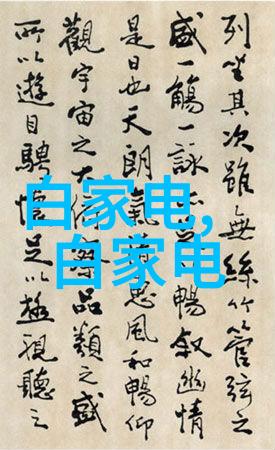 列坐其次雖無絲竹管弦之
盛一觴一詠亦足以暢叙幽情
是日也天朗氣清惠風和暢仰
觀宇宙之大俯察品類之盛
所以遊目騁懷足以極視聽之
白家电,
白家电